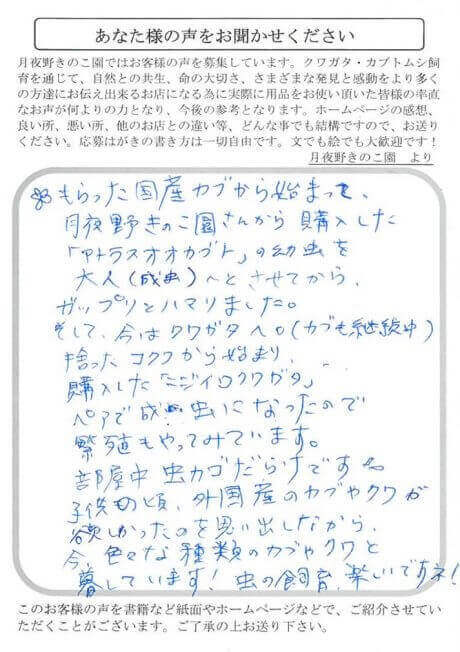 あなた様の声をお聞かせください
月夜野きのこ園ではお客様の声を募集しています。クワガタ・カブトムシ飼
育を通じて、自然との共生、命の大切さ、さまざまな発見と感動をより多く
の方達にお伝え出来るお店になる為に実際に用品をお使い頂いた皆様の率直
なお声が何よりの力となり、今後の参考となります。ホームページの感想、
良い所、悪い所、他のお店との違い等、どんな事でも結構ですので、お送り
ください。応募はがきの書き方は一切自由です。文でも絵でも大歓迎です！
月夜野きのこ園　より
もらった国産カブから始まって、
月夜野きのこ園さんから購入した
「アトラスオオカブト」の幼虫を
大人（成虫）へとさせてから、
ガップリとハマりました。
そして、今はクワガタへ。（カブも継続中）
捨ったコクワから始まり、
購入した「ニジイロクワガタ」
ペアで成虫になったので
繁殖もやってみています。
部屋中 虫カゴだらけです
子供の頃、外国産のカブやクワが
欲しかったのを思い出しながら、
今、色々な種類のカブやクワと
暮しています！虫の飼育、楽しいですネ！
このお客様の声を書籍など紙面やホームページなどで、ご紹介させてい
ただくことがございます。ご了承の上お送り下さい。